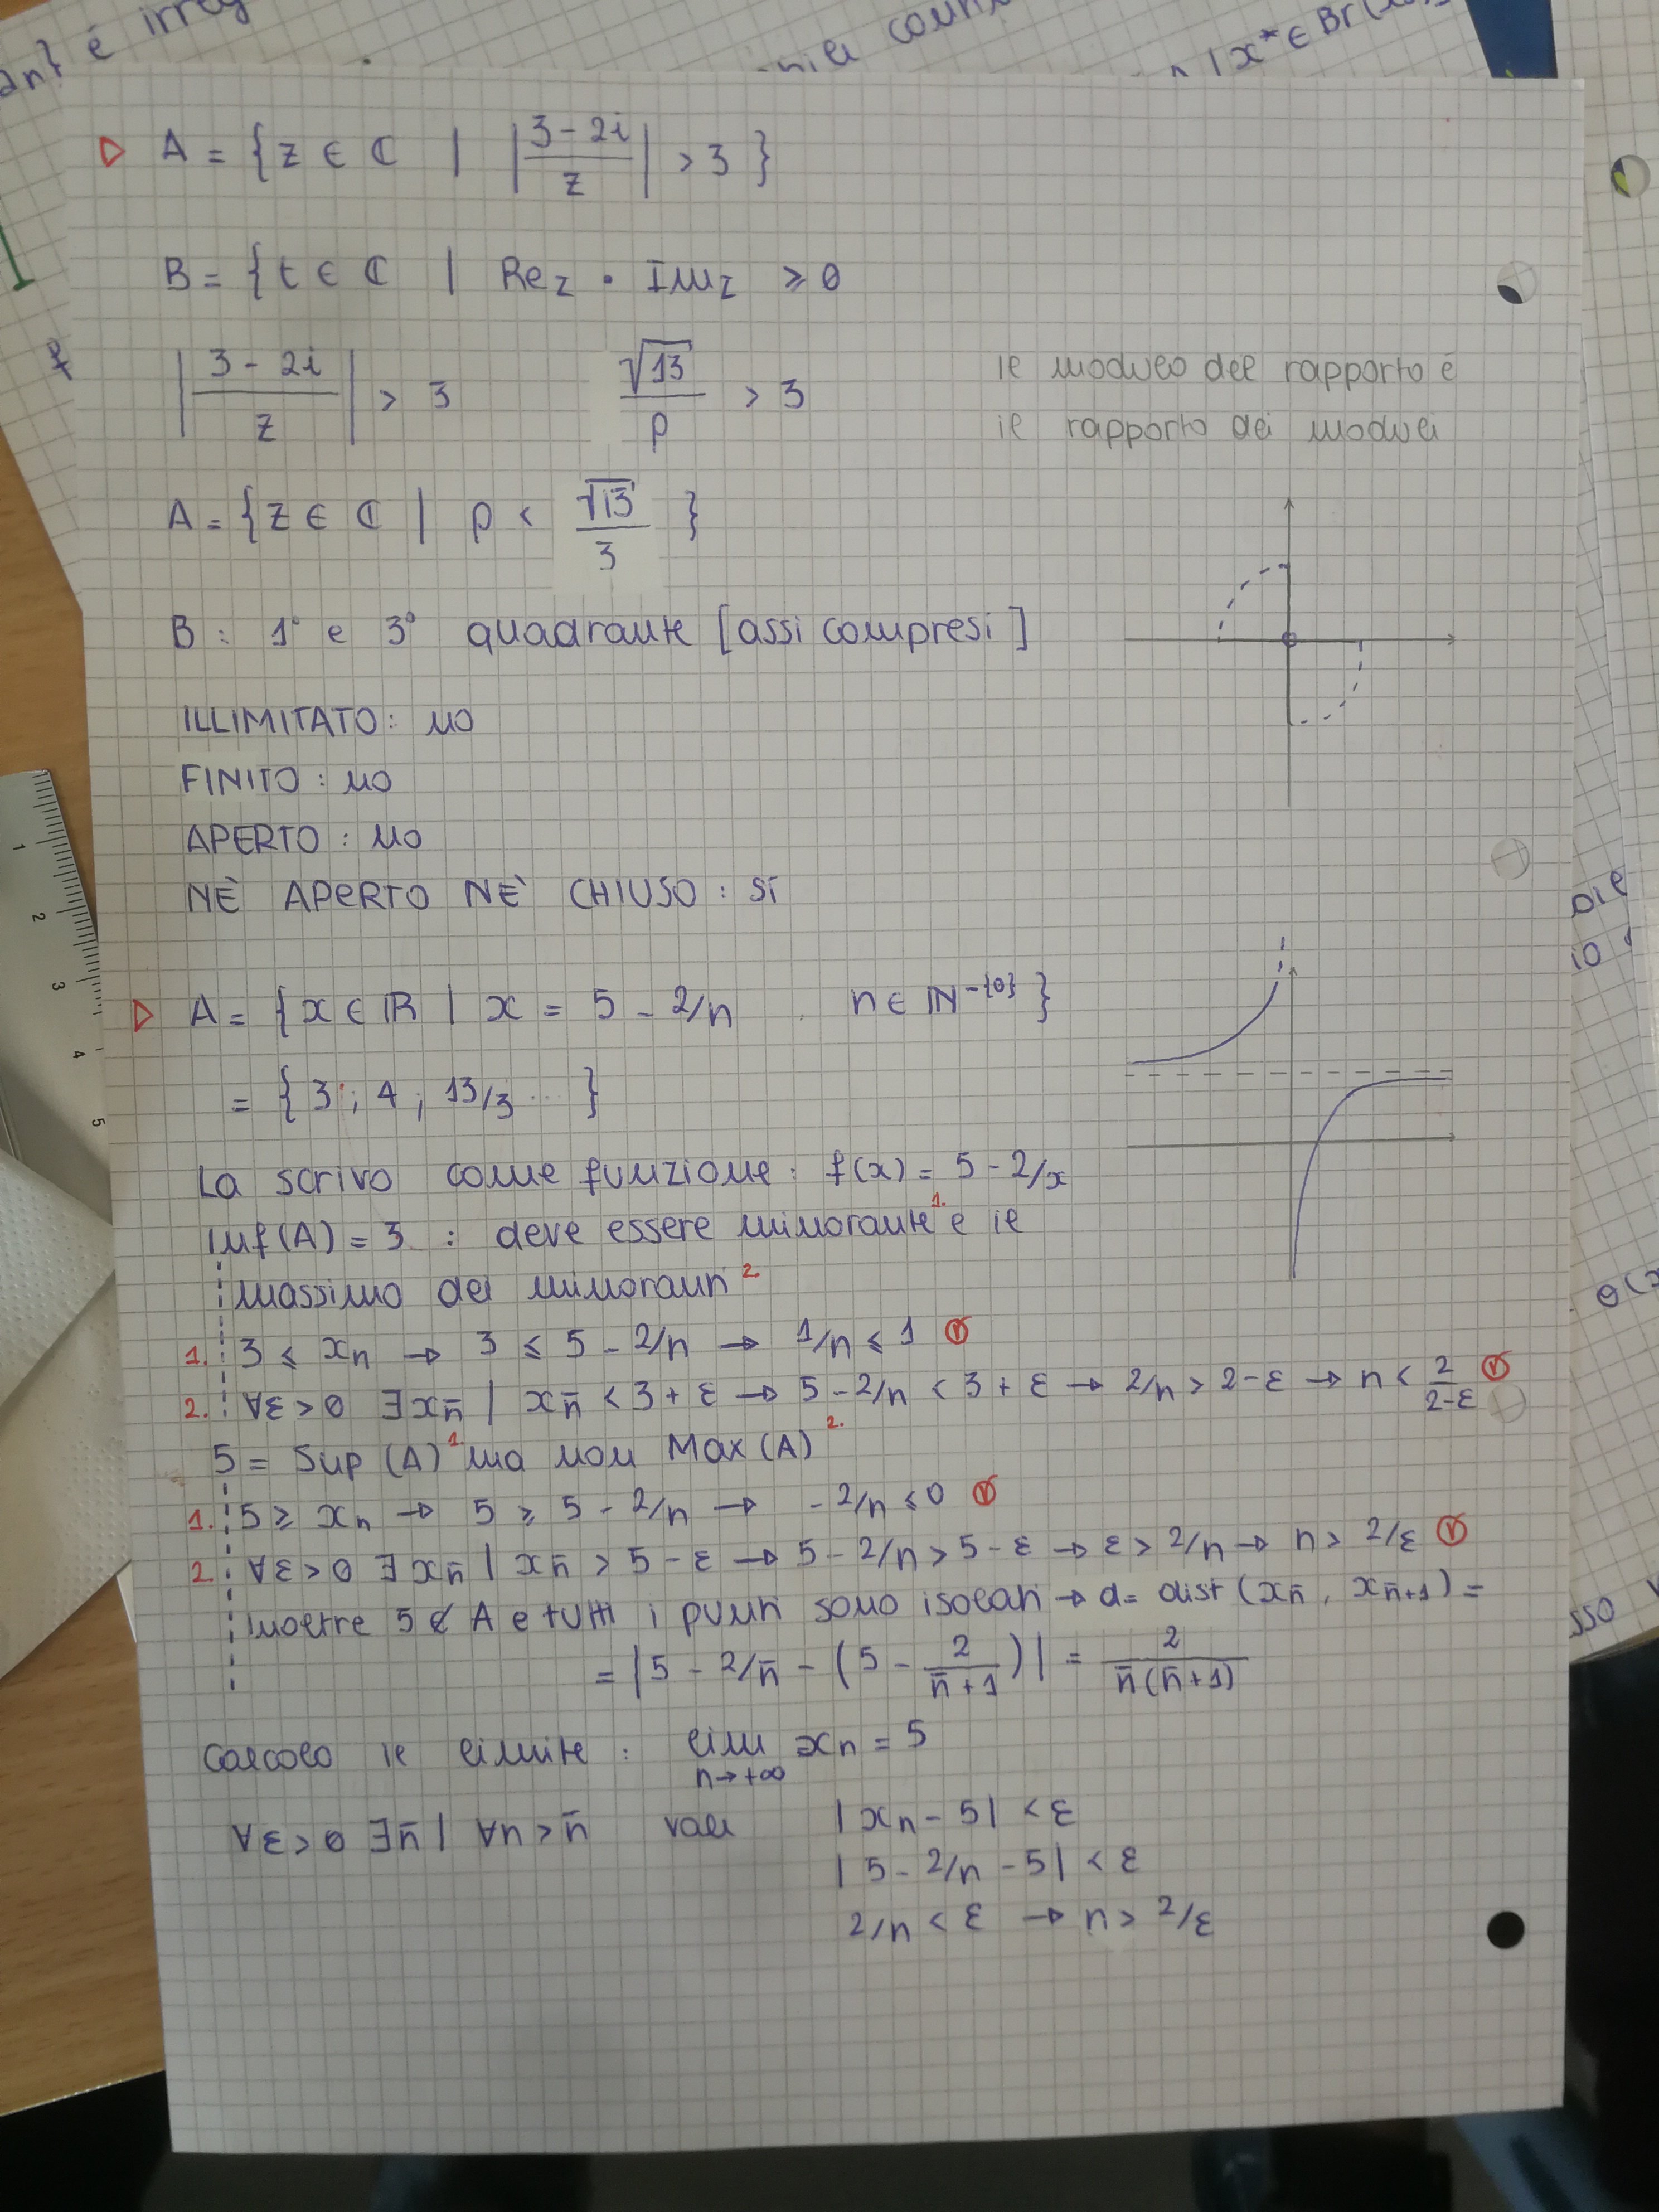 an} é irreg
niei coun
| x* ∈ Br(x0)
▷ A = { z ∈ ℂ | |3-2i / z| > 3 }
B = { t ∈ ℂ | Re z · Im z ≥ 0
|3-2i / z| > 3 √13 / ρ > 3 il modulo del rapporto è
il rapporto dei moduli
A = { z ∈ ℂ | ρ < √13 / 3 }
B : 1° e 3° quadrante [assi compresi]
ILLIMITATO: no
FINITO: no
APERTO: no
NÈ APERTO NÈ CHIUSO: SI
▷ A = { x ∈ ℝ | x = 5 - 2/n . n ∈ ℕ-{0} }
= { 3 ; 4 ; 13/3 ... }
La scrivo come funzione: f(x) = 5 - 2/x
Inf(A) = 3 : deve essere minorante 1. e il
massimo dei minoranti 2.
1. 3 ≤ xn → 3 ≤ 5 - 2/n → 1/n ≤ 1 Ⓥ
2. ∀ε>0 ∃xn̄ | xn̄ < 3+ε → 5-2/n < 3+ε → 2/n > 2-ε → n < 2 / 2-ε Ⓥ
5 = Sup(A) 1. ma non Max(A) 2.
1. 5 ≥ xn → 5 ≥ 5 - 2/n → - 2/n ≤ 0 Ⓥ
2. ∀ε>0 ∃xn̄ | xn̄ > 5-ε → 5-2/n > 5-ε → ε > 2/n → n > 2/ε Ⓥ
Inoltre 5 ∉ A e tutti i punti sono isolati → d = dist(xn̄, xn̄+1) =
= | 5 - 2/n̄ - (5 - 2 / n̄+1) | = 2 / n̄(n̄+1)
Calcolo il limite : lim n→+∞ xn = 5
∀ε>0 ∃n̄ | ∀n>n̄ vale |xn - 5| < ε
| 5 - 2/n - 5| < ε
2/n < ε → n > 2/ε